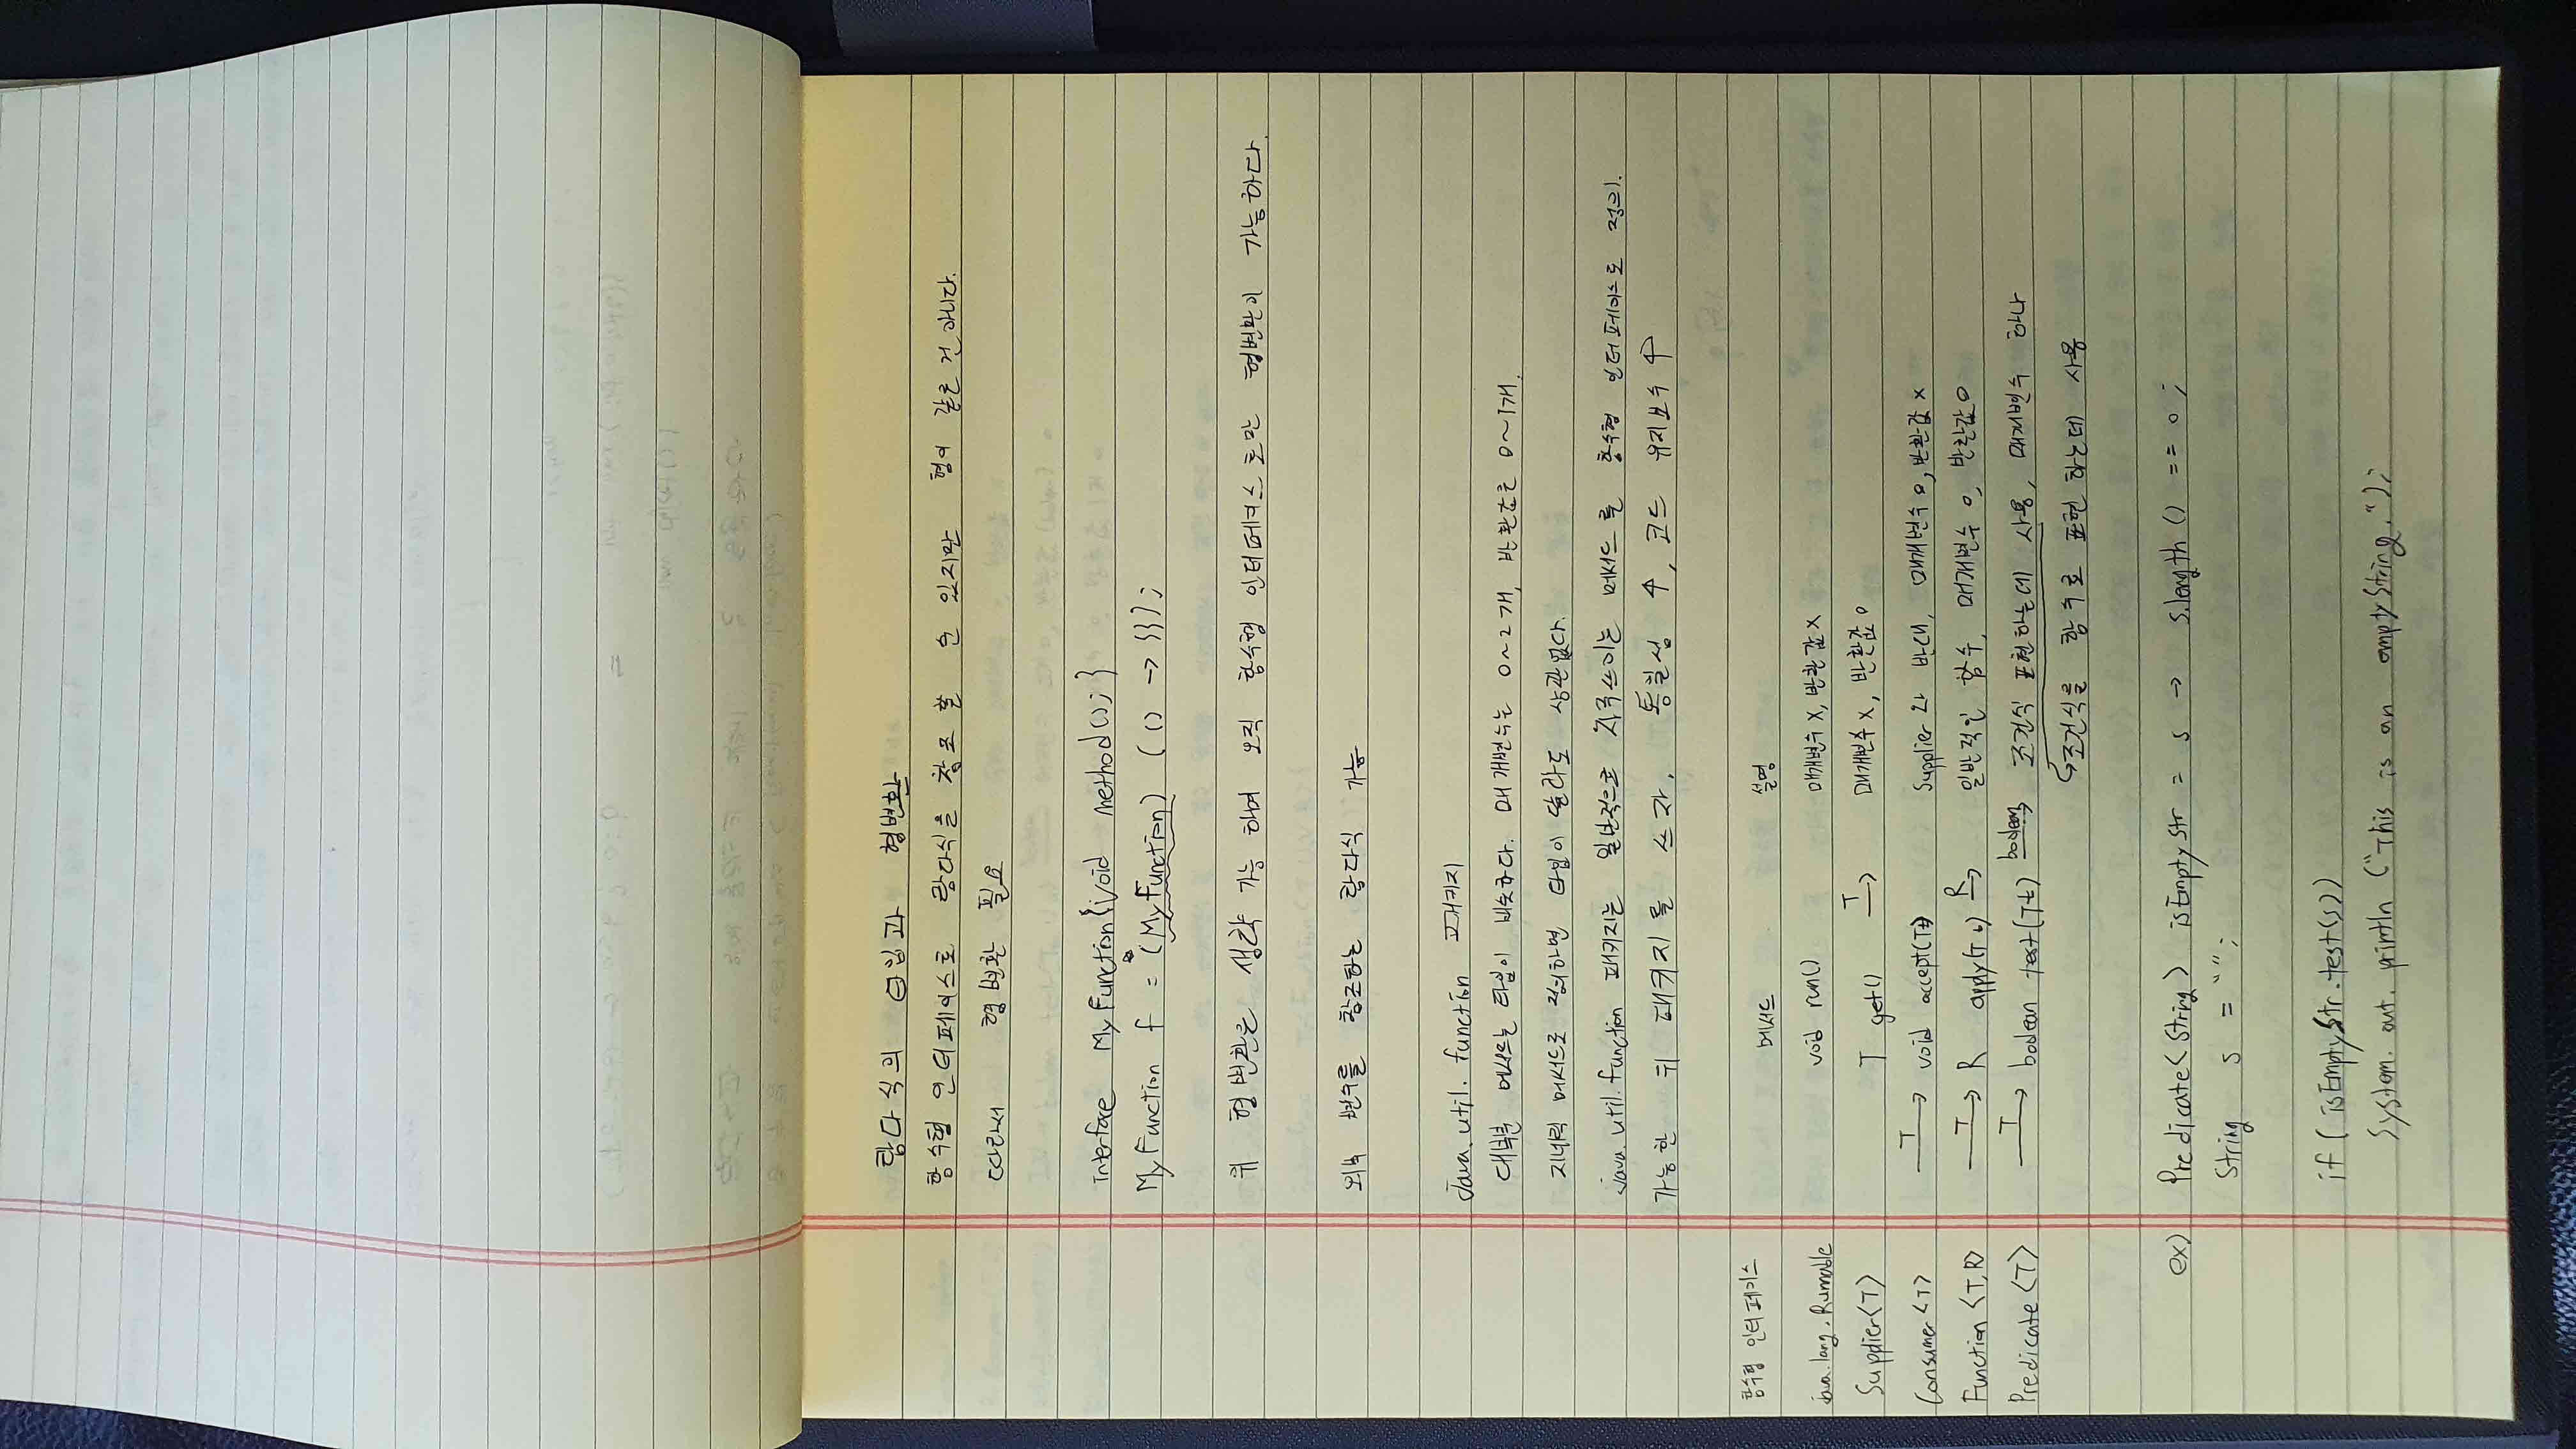 람다식의 타입과 형변환
함수형 인터페이스로 람다식을 참조 할 수 있지만 형이 같은 건 아니다.
따라서 형변환 필요
interface MyFunction{void method();}
MyFunction f = (MyFunction) (() → {});
위 형변환은 생략 가능 하며 오직 함수형 인터페이스로만 형변환이 가능하다.
외부 변수를 참조하는 람다식 가능
java.util.function 패키지
대부분 메서드는 타입이 비슷하다. 매개변수는 0~2개, 반환값은 0~1개.
지네릭 메서드로 정의하면 타입이 달라도 상관없다.
java.util.function 패키지는 일반적으로 자주쓰이는 메서드를 함수형 인터페이스로 정의.
가능한 위 패키지를 쓰자. 통일성 ↑, 코드 유지보수 ↑
함수형 인터페이스 메서드 설명
java.lang.Runnable void run() 매개변수 x, 반환값 x
Supplier<T> T get() T→ 매개변수 x, 반환값 o
Consumer<T> T→ void accept(T t) Supplier와 반대, 매개변수 o, 반환값 x
Function<T,R> T→ R apply(T t) R→ 일반적인 함수, 매개변수 o, 반환값 o
Predicate<T> T→ boolean test(T t) boolean→ 조건식 표현하는데 사용, 매개변수 하나
↳조건식을 함수로 표현 하는데 사용
ex) Predicate<String> isEmptyStr = s → s.length() == 0;
String s = "";
if(isEmptyStr.test(s))
System.out.println("This is an emptyString.");